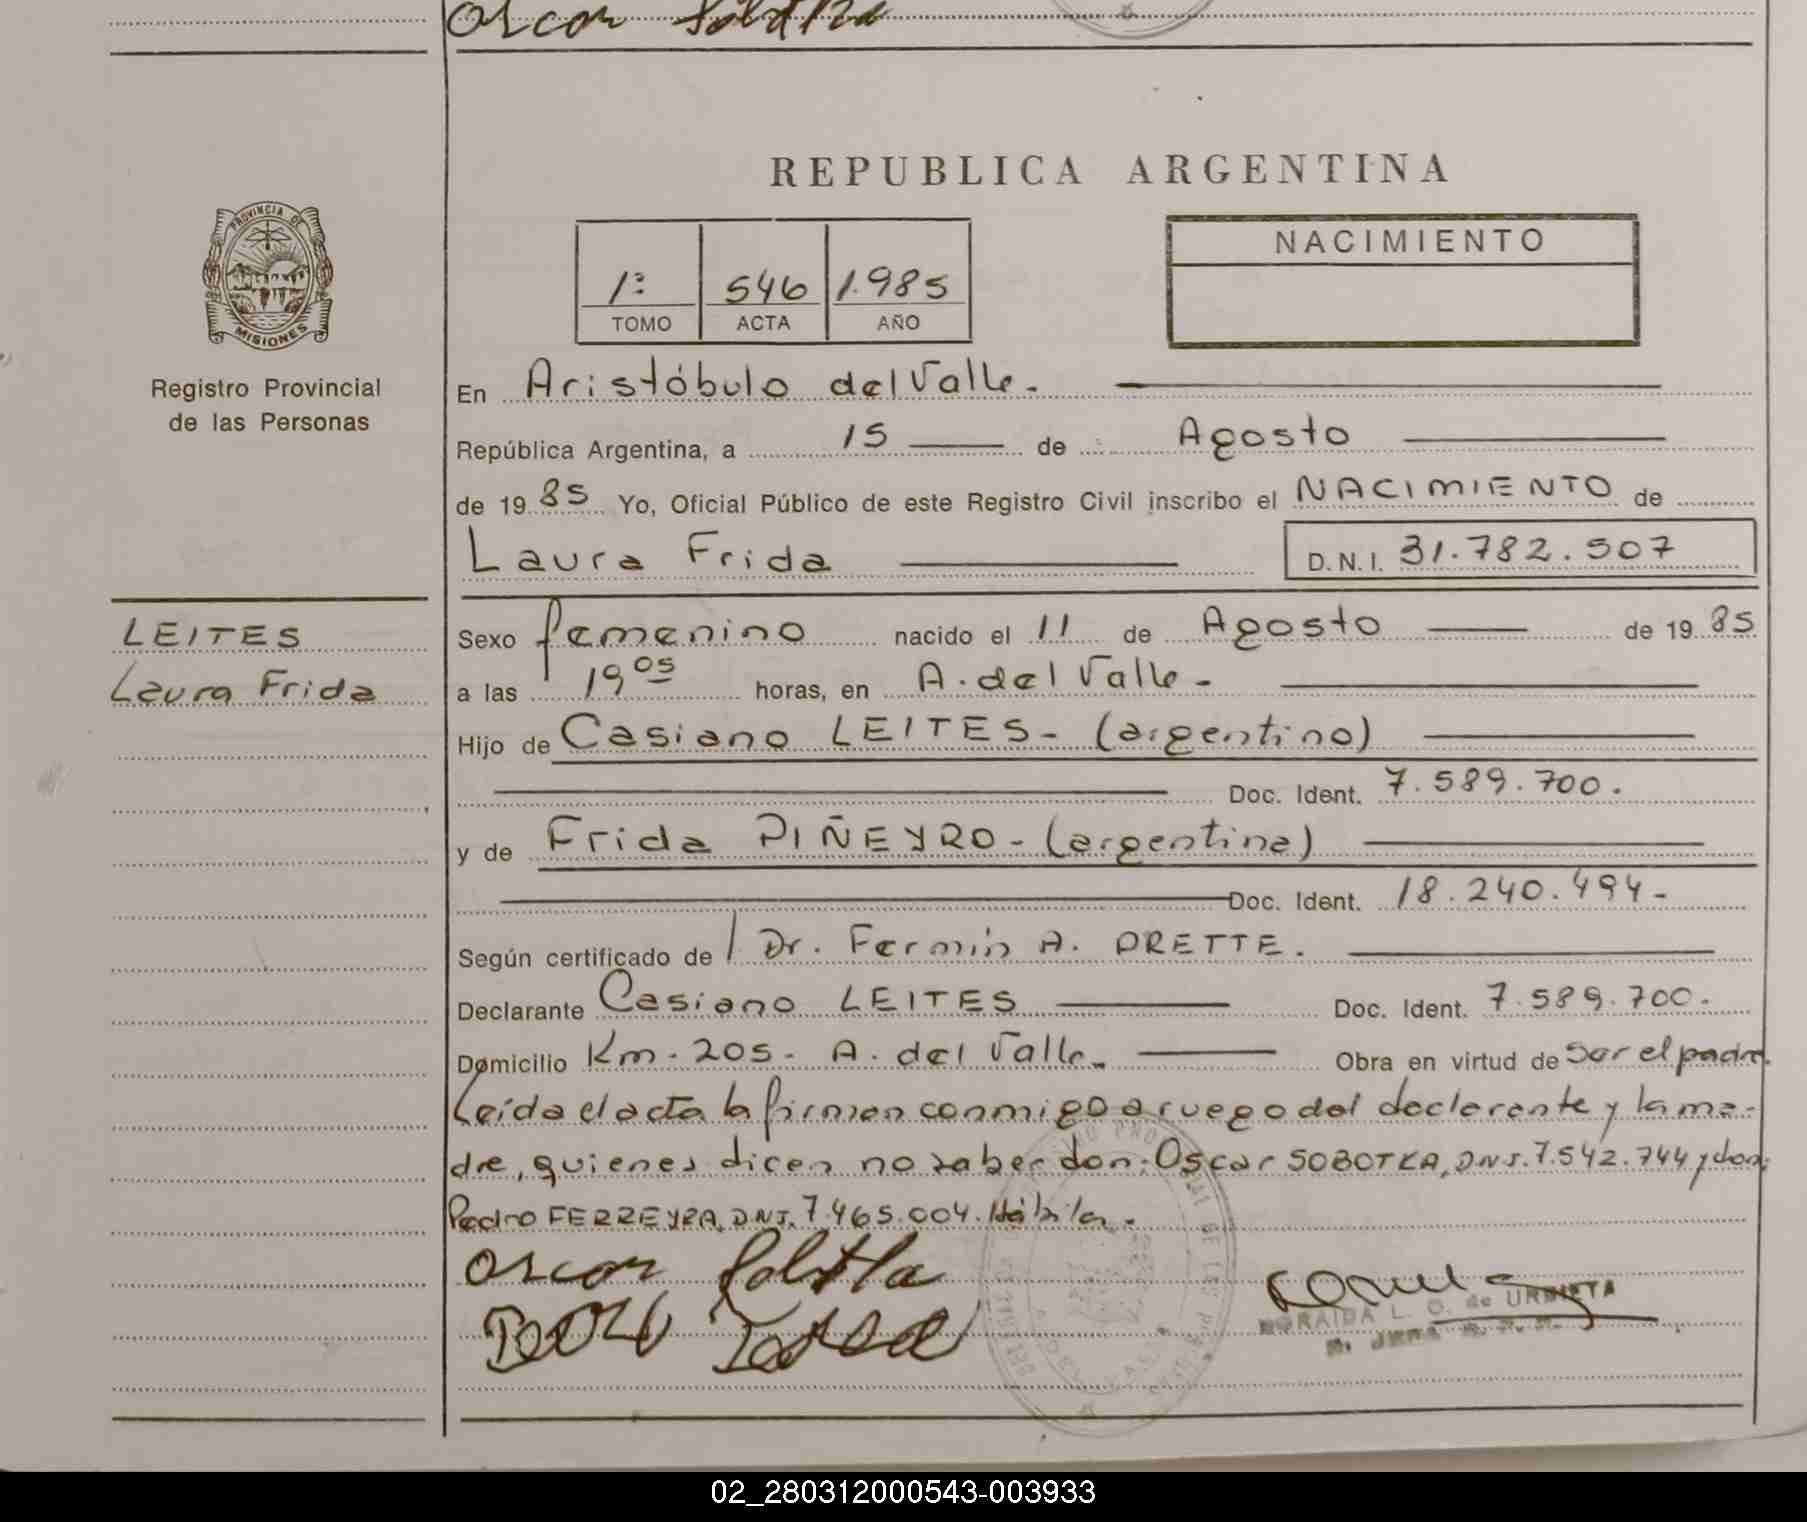 Oscar Sobotka
REPUBLICA ARGENTINA
PROVINCIA DE
MISIONES
Registro Provincial
de las Personas
1º 546 1.985
TOMO ACTA AÑO
NACIMIENTO
En Aristóbulo del Valle.
República Argentina, a 15 de Agosto
de 1985 Yo, Oficial Público de este Registro Civil inscribo el NACIMIENTO de
Laura Frida D.N.I. 31.782.507
LEITES
Laura Frida
Sexo femenino nacido el 11 de Agosto de 1985
a las 19 05 horas, en A. del Valle.-
Hijo de Casiano LEITES- (argentino)
Doc. Ident. 7.589.700.
y de Frida PIÑEYRO-(argentina)
Doc. Ident. 18.240.494-
Según certificado de Dr. Fermín A. PRETTE.
Declarante Casiano LEITES Doc. Ident. 7.589.700.
Domicilio Km. 205- A. del Valle.- Obra en virtud de ser el padre.
Leída el acta la firman conmigo a ruego del declarante y la ma-
dre, quienes dicen no saber don: Oscar SOBOTKA, DNI. 7.542.744 y don:
Pedro FERREYRA, DNI. 7.465.004. Hábiles.-
Oscar Sobotka
L. O. de URBIETA
02_280312000543-003933